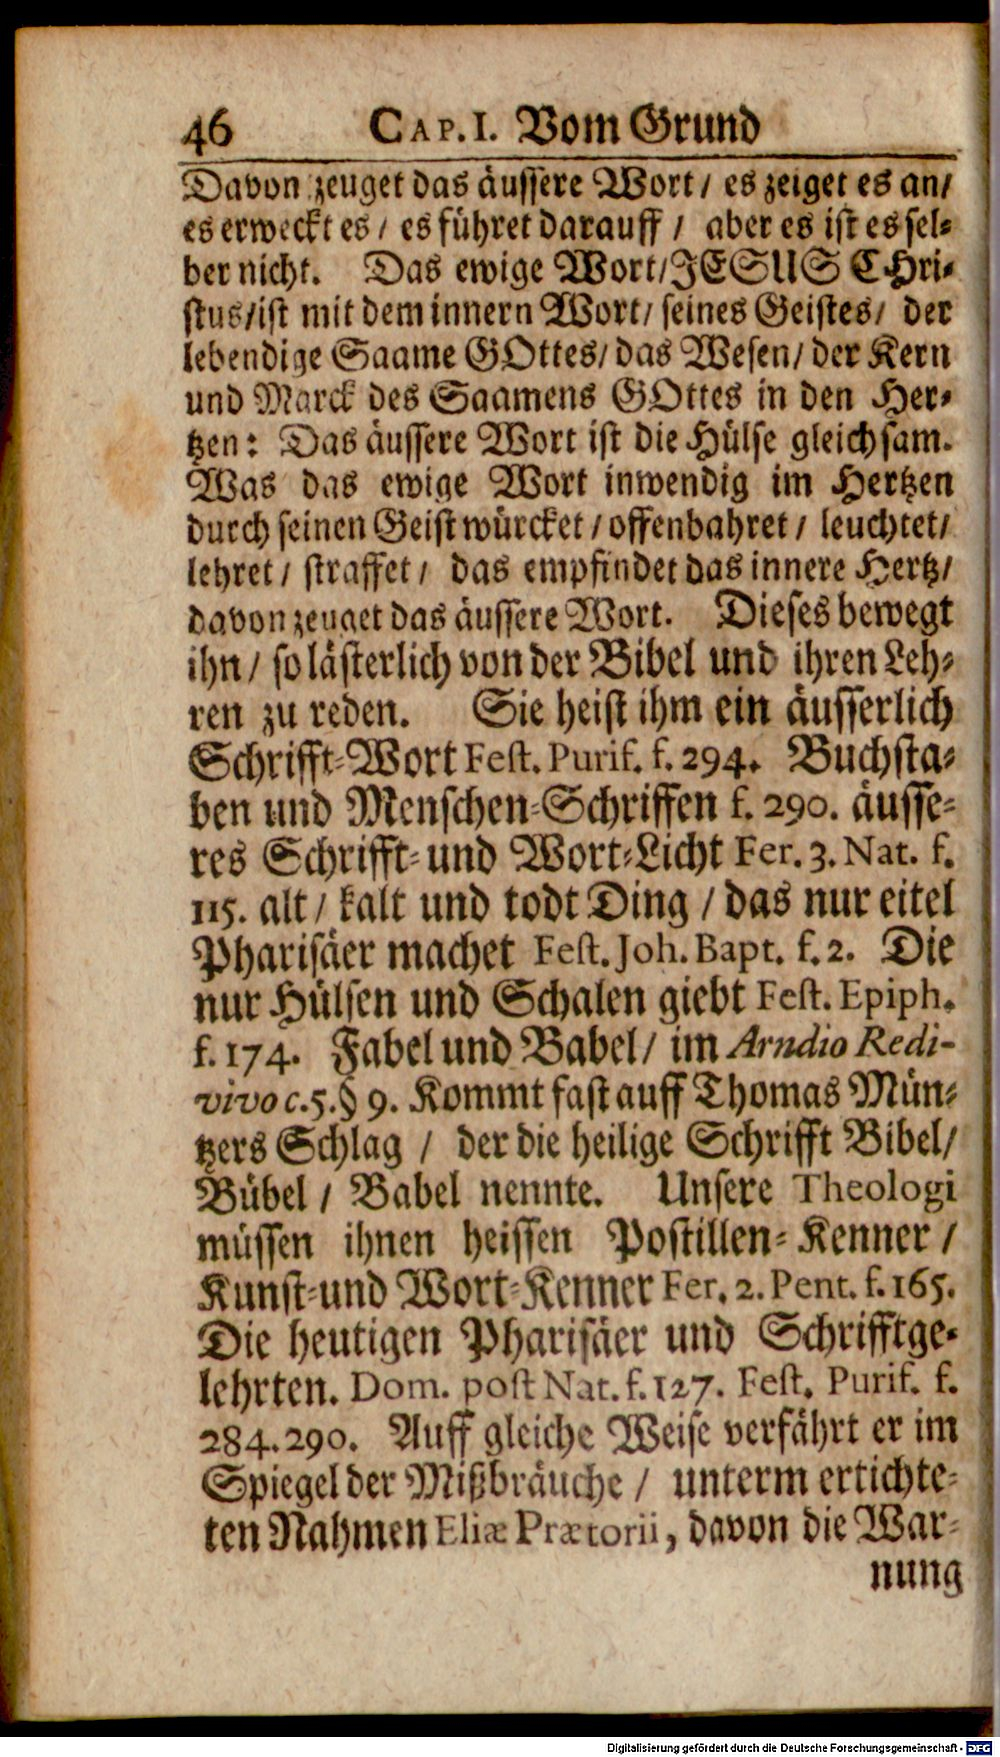 46 CAP. I. Vom Grund
Davon zeuget das äussere Wort / es zeiget es an /
es erweckt es / es führet darauff / aber es ist es sel-
ber nicht. Das ewige Wort / JESUS CHri-
stus / ist mit dem innern Wort / seines Geistes / der
lebendige Saame GOttes / das Wesen / der Kern
und Marck des Saamens GOttes in den Her-
tzen: Das äussere Wort ist die Hülse gleichsam.
Was das ewige Wort inwendig im Hertzen
durch seinen Geist würcket / offenbahret / leuchtet /
lehret / straffet / das empfindet das innere Hertz /
davon zeuget das äussere Wort. Dieses bewegt
ihn / so lästerlich von der Bibel und ihren Leh-
ren zu reden. Sie heist ihm ein äusserlich
Schrifft-Wort Fest. Purif. f. 294. Buchsta-
ben und Menschen-Schriffen f. 290. äusse-
res Schrifft- und Wort-Licht Fer. 3. Nat. f.
115. alt / kalt und todt Ding / das nur eitel
Pharisäer machet Fest. Joh. Bapt. f. 2. Die
nur Hülsen und Schalen giebt Fest. Epiph.
f. 174. Fabel und Babel / im Arndio Redi-
vivo c. 5. § 9. Kommt fast auff Thomas Mün-
tzers Schlag / der die heilige Schrifft Bibel /
Bübel / Babel nennte. Unsere Theologi
müssen ihnen heissen Postillen-Kenner /
Kunst- und Wort-Kenner Fer. 2. Pent. f. 165.
Die heutigen Pharisäer und Schrifftge-
lehrten. Dom. post Nat. f. 127. Fest. Purif. f.
284. 290. Auff gleiche Weise verfährt er im
Spiegel der Mißbräuche / unterm ertichte-
ten Nahmen Eliæ Prætorii, davon die War-
nung
Digitalisierung gefördert durch die Deutsche Forschungsgemeinschaft - DFG